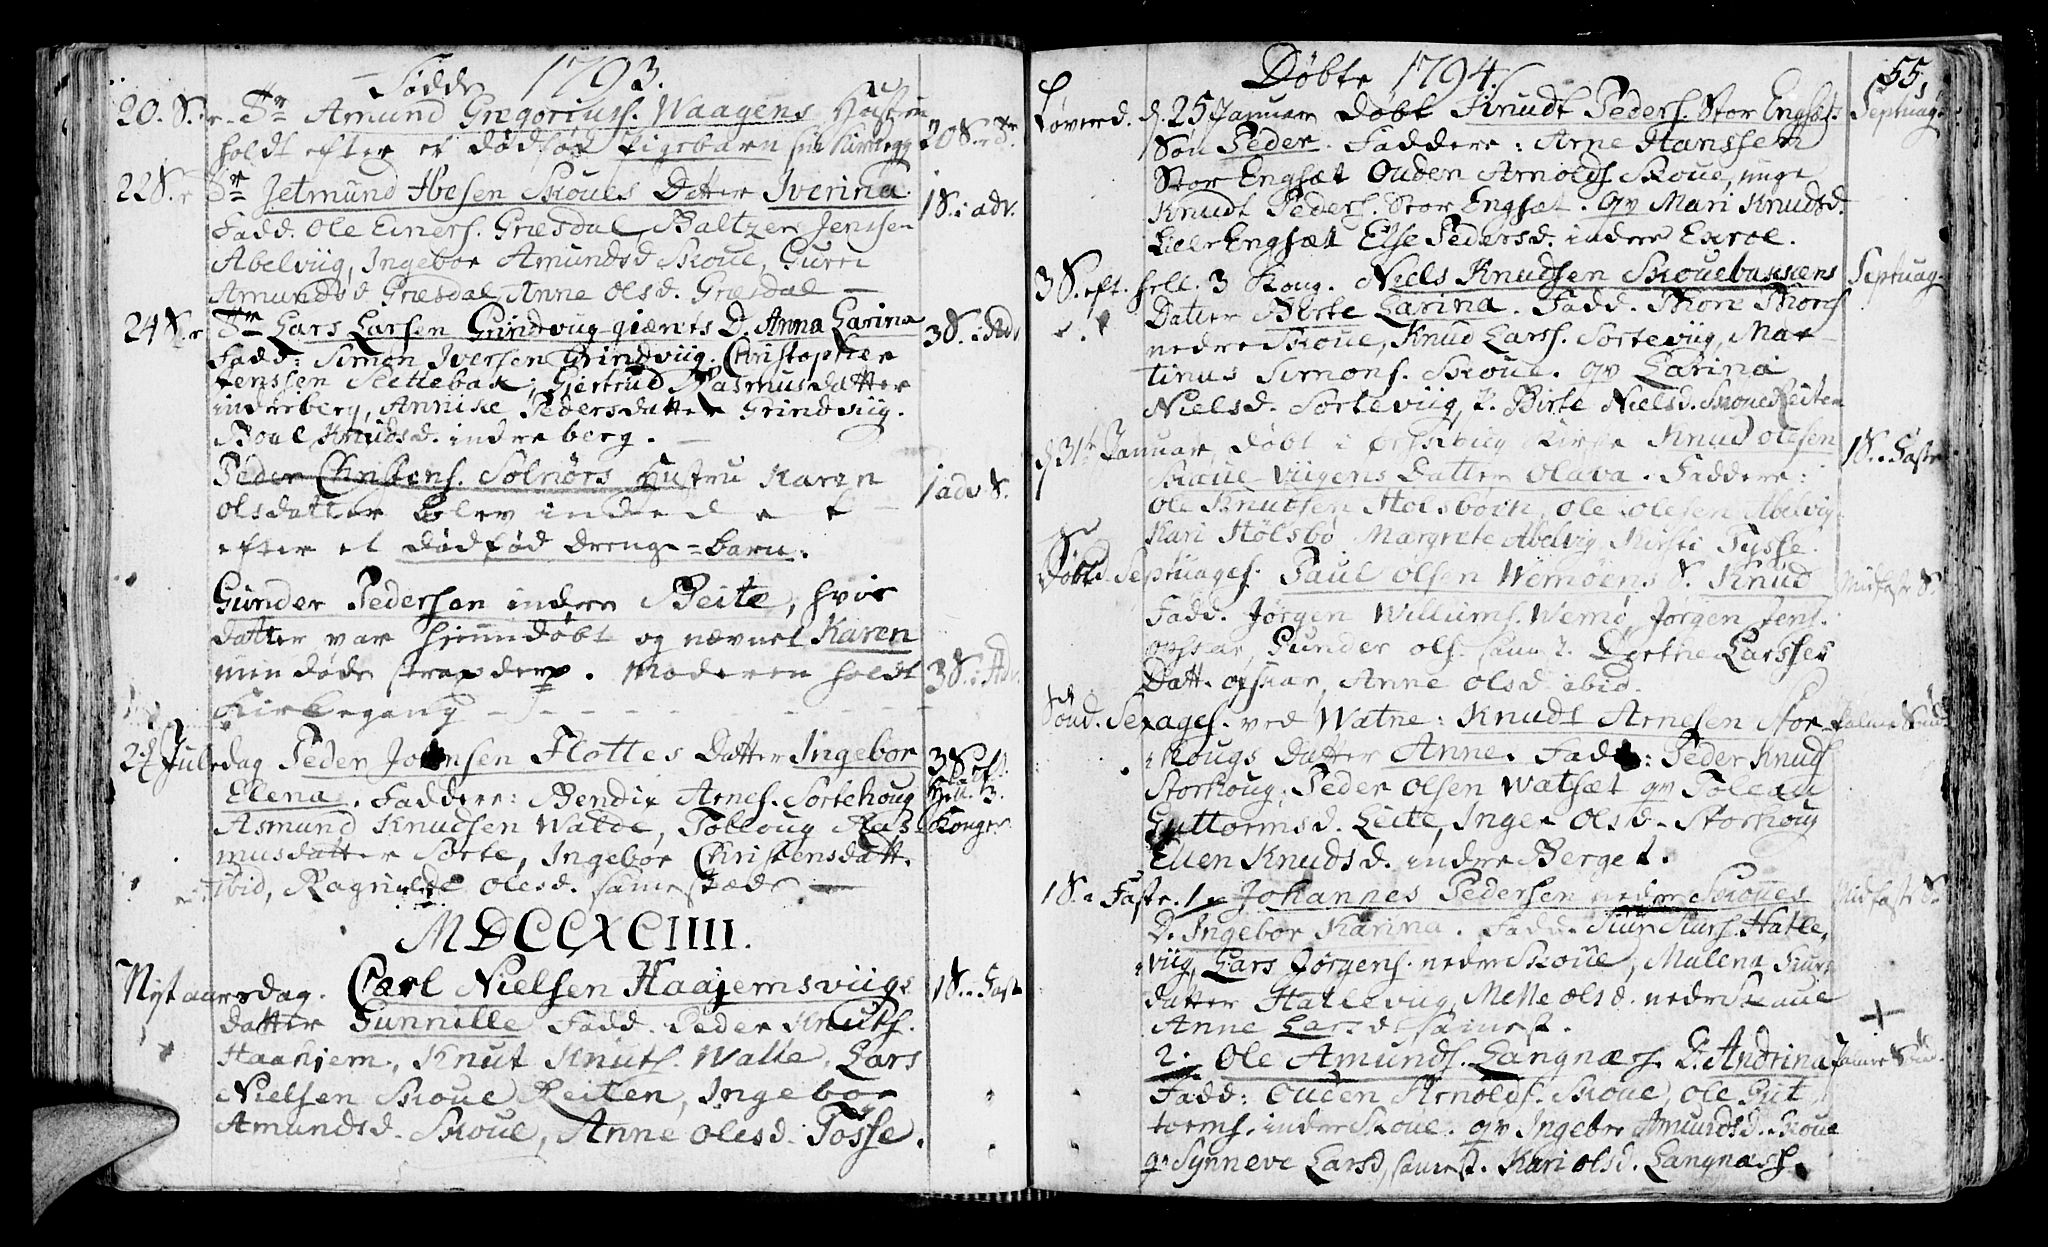 Fødde 1793.
20. S. Tr. Amund Gregoriuss. Waagens Hustru
holdt efter et dødfød Pigebarn sin Kirkegg 20 S. Tr.
22 S. Tr. Jetmund Ibesen Skoues Datter Iverina
1 S. i adv.
Fadd. Ole Einers. Græsdal, Baltzer Jenssen
Abelviig, Ingebor Amundsd Skoue, Guri
Amundsd Græsdal, Anne Olsd. Græsdal
24 S. Tr. Lars Larsen Grindviig giærets D. Anna Larina 3 S. i Adv
Fadd: Simon Iversen Grindviig. Christopher
Jenssen Slettebak, Giertrud Rasmusdatter
indreberg, Annike Pedersdatter Grindviig.
Boul Knudsd. indreberg.
Peder Christens. Solnørs Hustru Karen
1 adv S.
Olsdatter blev indledet
efter et dødfød drenge-barn.
Gunder Pedersen indre Beite, hvis
datter var hjemmdøbt og nævnet Karen
men døde strax derp. Moderen holdt 3 S. i Adv.
Kirkegang
2d Juledag Peder Johnsen Flottes datter Ingebor 3 S. eft.
Elena. Faddere: Bendix Arnes. Sortehoug Hell. 3.
Asmund Knudsen Walde, Tolloug Ras Konger.
musdatter Sorte, Ingebor Christensdatt.
ibid, Ragnilde Olesd. samestæds
MDCCXCIIII.
Nyt aarsdag. Carl Nielsen Haajemsviigs 1 S. i Fast
datter Gunnille Fadd. Peder Knuts.
Haahjem, Knut Knuts. Walle, Lars
Nielsen Skoue Reiten, Ingebor
Amundsd. Skoue, Anne Olesd. Tosse.
Døbte 1794.
55,
Løverd. d. 25 Januar døbt Knudt Peders. Stor Engsæt. Septuag.
Søn Peder. Faddere: Arne Hanssen
Stor Engsæt Ouden Arnolds. Skoue, unge
Knudt Peders. Stor Engsæt. qv Mari Knudsd.
Lille Engsæt Else Pedersd. indre Exroe.
3 S. eft. hell. 3 Kong. Niels Knudsen Skouebakkens Septuag.
Datter Berte Larina. Fadd. Thore Thors
nedre Skoue, Knud Larss. Sorteviig, Mar
tinus Simons. Skoue. qv Larina
Nielsd. Sorteviig, P. Birte Nielsd. Skoue Reiten
d. 31te Januar døbt i Ørskoug Kirke Knud Olesen 1 S. i Faste
Skoue Viigens Datter Olava. Faddere:
Ole Knudsen Holsboen, Ole Olesen Abelviig
Kari Hølsbø Margrete Abelvig Kirsti Fysse.
Døbt d. Septuages. Paul Olsen Wemøens S. Knud Midfaste S.
Fadd. Jørgen Willums. Wemø, Jørgen Jens.
opsar, Gunder ols. sam P. Dorthe Larsses
Datt. opsaar, Anne Olsd ibid.
Sønd. Sexages. ved Watne: Knudt Arnesen Stor Palme Sønd
Skougs datter Anne. Fadd: Peder Knuds
Storhoug; Peder Olsen Watsæt qv Toleau
Guttormsd. Leite, Inger Olsd. Storhoug
Ellen Knudsd. indre Berget.
1 S. i Faste. 1. Johannes Pedersen nedre Skoues Midfaste S
D. Ingebor Karina. Fadd. Siur Siurs. Hatle,
viig, Lars Jørgens. nedre Skoue, Malena Siurs
datter Hatleviig, Mette Olsd. nedre Skoue
Anne Larsd. samest.
2. Ole Amunds. Langnæss. D. Andrina Palme Sønd.
Fadd: Ouden Arnolds. Skoue, Ole Gut
torms. indre Skoue. qv Ingebor Amundsd. Skoue
q. Synneve Larsd, samest. Kari Olsd. Langnæss.